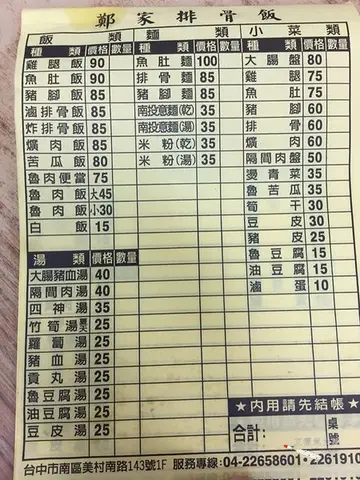 鄭家排骨飯
飯類 價格 數量
雞腿飯 90
魚肚飯 90
豬腳飯 85
滷排骨飯 85
炸排骨飯 85
爌肉飯 85
苦瓜飯 80
魯肉便當 75
魯肉飯 大45
魯肉飯 小30
白飯 15
湯類 價格 數量
大腸豬血湯 40
隔間肉湯 40
四神湯 35
竹筍湯 25
蘿蔔湯 25
豬血湯 25
貢丸湯 25
魯豆腐湯 25
油豆腐湯 25
豆皮湯 25
麵類
種類 價格 數量
魚肚麵 100
排骨麵 85
豬腳麵 85
南投意麵(乾) 35
南投意麵(湯) 35
米粉(乾) 35
米粉(湯) 35
小菜類
種類 價格 數量
大腸盤 80
雞腿 75
魚肚 75
豬腳 60
排骨 60
爌肉 60
隔間肉盤 50
燙青菜 35
魯苦瓜 35
筍干 30
豆皮 30
豬皮 25
魯豆腐 15
油豆腐 15
滷蛋 10
★內用請先結帳★
合計: 桌號
台中市南區美村南路143號1F 服務專線:04-22658601・2261910